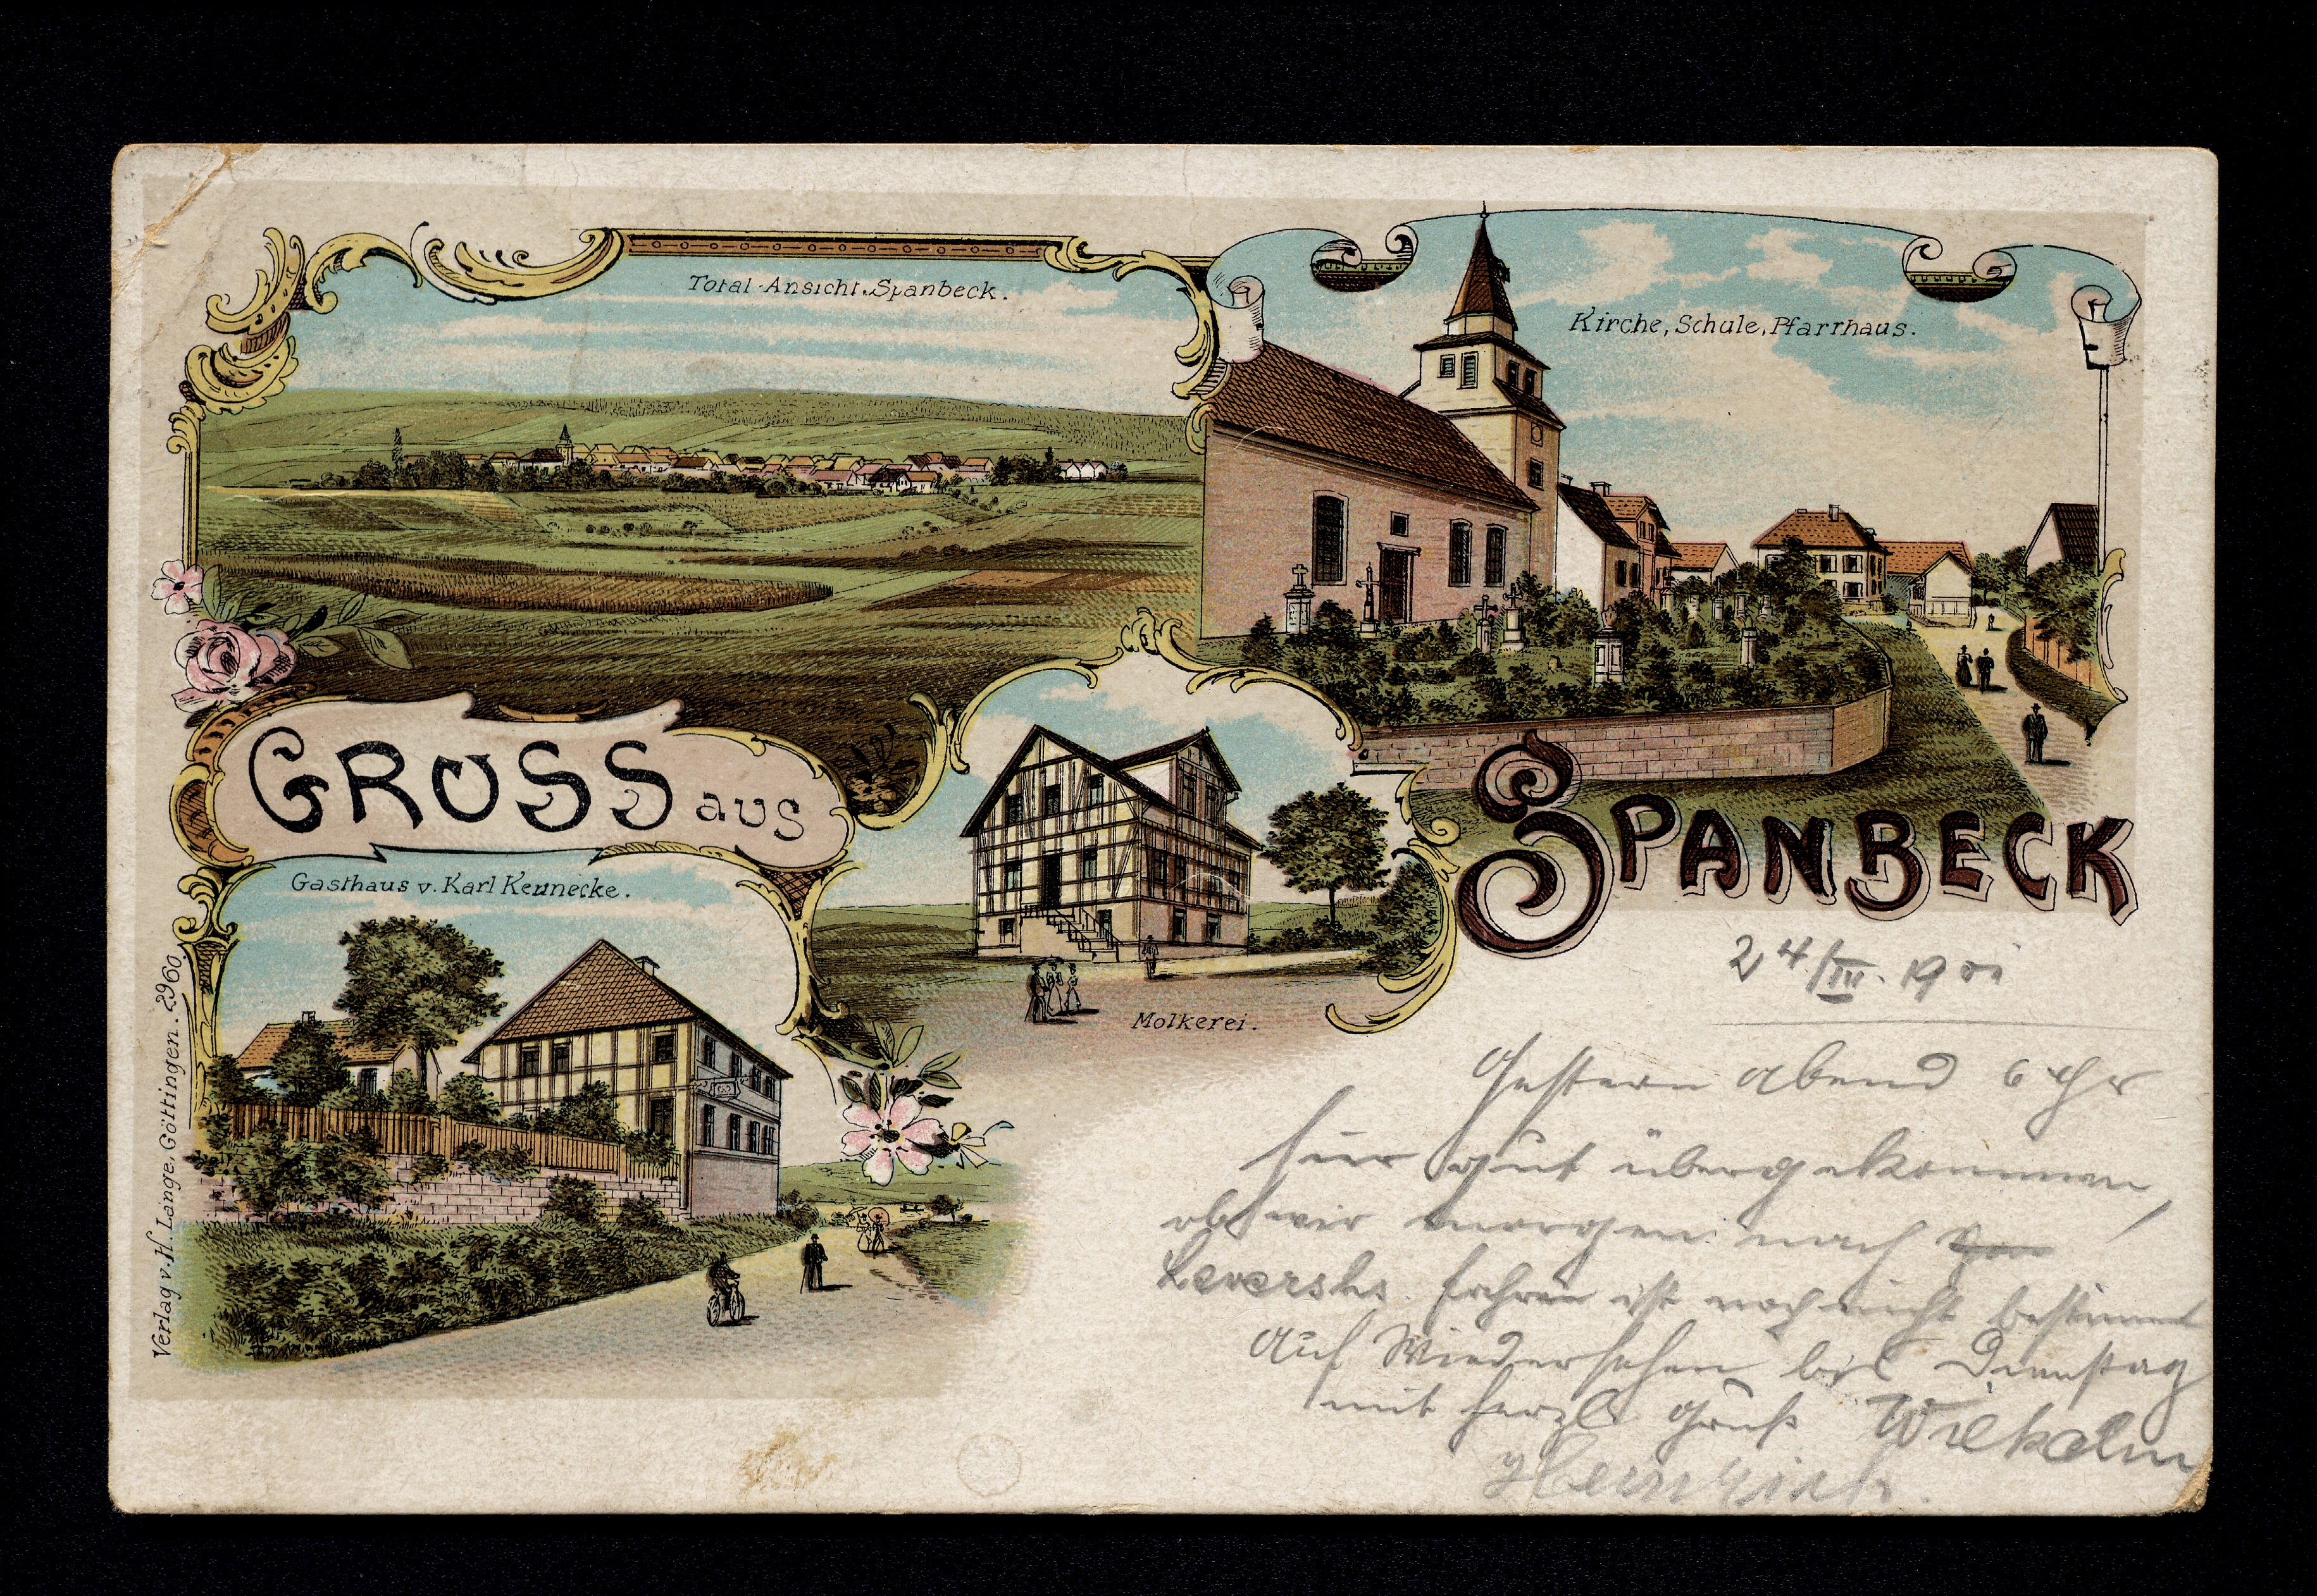 Total-Ansicht.Spanbeck.
Kirche, Schule, Pfarrhaus.
GRUSS aus
SPANBECK
Gasthaus v. Karl Kennecke.
Molkerei.
Verlag v. H. Lange, Göttingen. 2960.
24/III. 19
Gestern abend 6 Uhr
hier gut übergekommen,
ob wir morgen nach
Levershs. fahren ist noch nicht bestimmt
Auf Wiedersehen bis Dienstag
mit herzl Gruß Wilhelm
Heinrich.